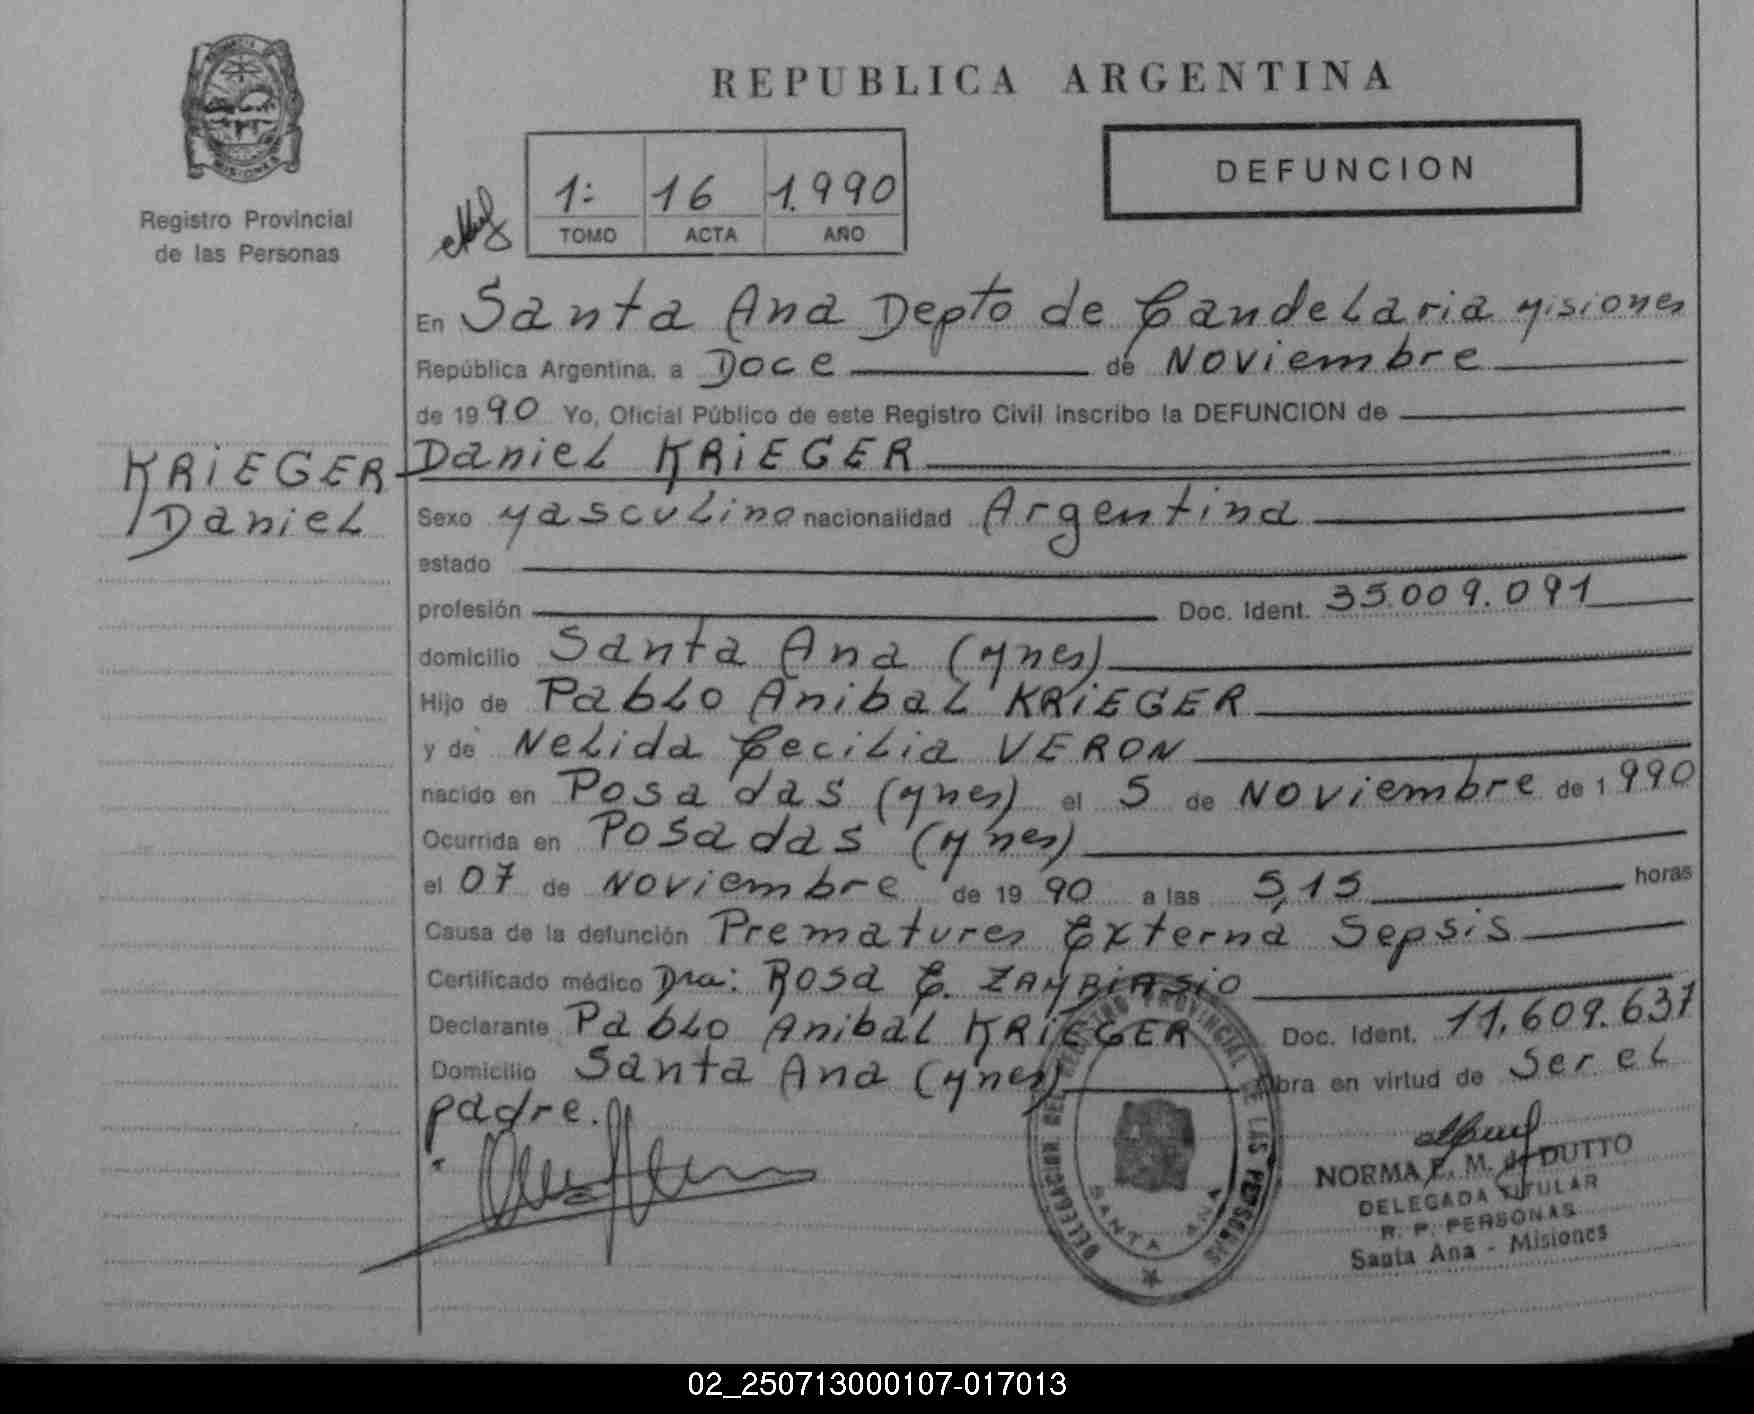 REPUBLICA ARGENTINA
DEFUNCION
1: 16 1.990
TOMO ACTA AÑO
Registro Provincial
de las Personas
MISIONES
En Santa Ana Depto de Candelaria Misiones
República Argentina, a Doce de Noviembre
de 1990 Yo, Oficial Público de este Registro Civil inscribo la DEFUNCION de
KRiEGER
Daniel
Daniel KRiEGER
Sexo Masculino nacionalidad Argentina
estado
profesión Doc. Ident. 35.009.091
domicilio Santa Ana (Mnes)
Hijo de Pablo Anibal KRiEGER
y de Nelida Cecilia VERON
nacido en Posadas (Mnes) el 5 de Noviembre de 1990
Ocurrida en Posadas (Mnes)
el 07 de Noviembre de 1990 a las 5,15 horas
Causa de la defunción Prematures Externa Sepsis
Certificado médico Dra: Rosa E. ZAMBiASio
Declarante Pablo Anibal KRiEGER Doc. Ident. 11.609.637
Domicilio Santa Ana (Mnes) Obra en virtud de Ser el
padre.
DELEGACION DEL REGISTRO PROVINCIAL DE LAS PERSONAS
SANTA ANA
NORMA E. M. de DUTTO
DELEGADA TITULAR
R. P. PERSONAS
Santa Ana - Misiones
02_250713000107-017013